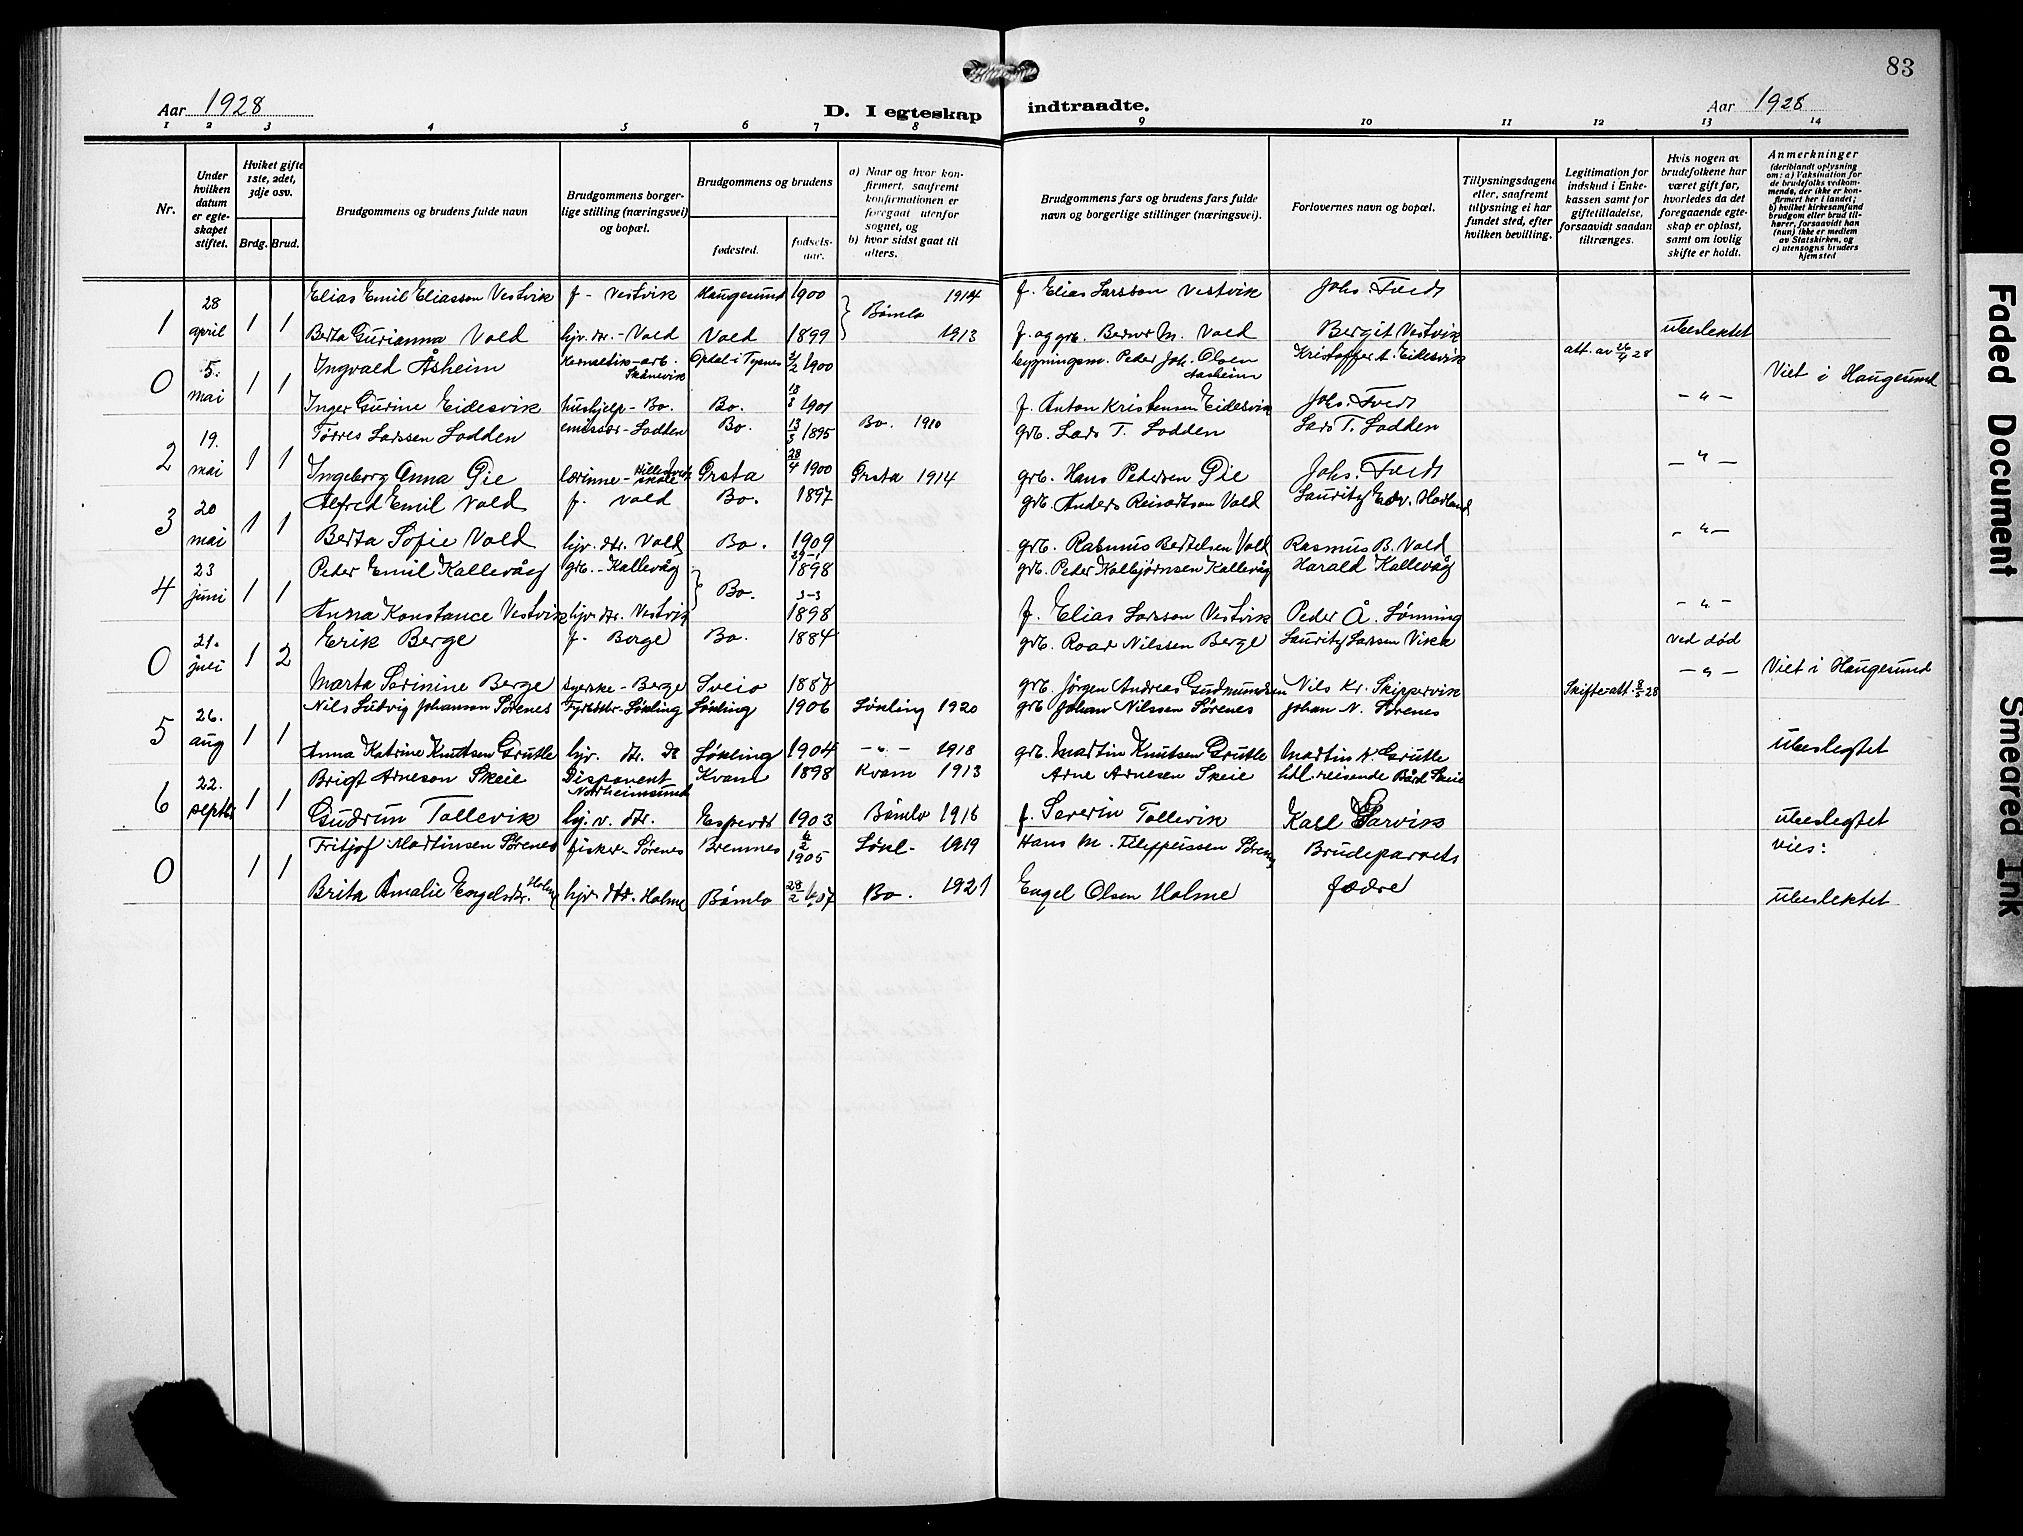 83
Aar 1928
D. I egteskap indtraadte.
Aar 1928
1 2 3 4 5 6 7 8 9 10 11 12 13 14
Nr.
Under hvilken datum er egteskapet stiftet.
Hvilket gifte 1ste, 2det, 3dje osv.
Brdg. Brud.
Brudgommens og brudens fulde navn
Brudgommens borgerlige stilling (næringsvei) og bopæl.
Brudgommens og brudens
fødested.
fødselsaar.
a) Naar og hvor konfirmert, saafremt konfirmationen er foregaat utenfor sognet, og
b) hvor sidst gaat til alters.
Brudgommens fars og brudens fars fulde navn og borgerlige stillinger (næringsvei).
Forlovernes navn og bopæl.
Tillysningsdagene eller, saafremt tillysning ei har fundet sted, efter hvilken bevilling.
Legitimation for indskud i Enkekassen samt for giftetilladelse, forsaavidt saadan tiltrænges.
Hvis nogen av brudefolkene har været gift før, hvorledes da det foregaaende egteskap er opløst, samt om lovlig skifte er holdt.
Anmerkninger (deriblandt oplysning om: a) Vaksination for de brudefolks vedkommende, der ikke er konfirmert her i landet; b) hvilket kirkesamfund brudgom eller brud tilhører, forsaavidt han (hun) ikke er medlem av Statskirken, og c) utensogns bruders hjemsted
1 28 april 1 1 Elias Emil Eliassen Vestvik f- Vestvik Haugesund 1900 Bømlo 1914 f. Elias Larsson Vestvik Johs. Tvedt
Berta Gurianna Vold hjv. dtr. - Vold Vold 1899 1913 f. og grb. Berner M. Vold Bergit Vestvik ubeslektet
0 5. mai 1 1 Ingvald Åsheim Hermetik-arb. Skånevik Opdal i Tysnes 3/2 1900 bygningsm. Peder Joh. Olsen Aasheim Kristoffer A. Eidesvik att. av 26/4 28 Viet i Haugesund
Inger Gurine Eidesvik hushjelp - Bo. Bo. 13/3 1901 f. Anton Kristensen Eidesvik Johs. Tvedt - " -
2 19. mai 1 1 Tørres Larssen Lodden emissær - Lodden Bo. 13/3 1895 Bo. 1910 grb. Lars T. Lodden Lars T. Lodden
Ingeborg Anna Pie lærinne - skole Ørsta 28/4 1900 Ørsta 1914 grb. Hans Pedersen Pie Johs. Tvedt - " -
3 20 mai 1 1 Alfred Emil Vold f. Vold Bo. 1897 grb. Anders Reinertson Vold Lauritz Edv. Hovland
Berta Sofie Vold hjv. dtr. Vold Bo. 1909 grb. Rasmus Bertelsen Vold Rasmus B. Vold - " -
4 23 juni 1 1 Peder Emil Kallevåg grb. - Kallevåg Bo. 29-1 1898 grb. Peder Kolbjørnsen Kallevåg Harald Kallevåg
Anna Konstance Vestvik hjv. dtr. Vestvik 3-3 1898 f. Elias Larsson Vestvik Peder Å. Lønning - " -
0 21. juli 1 2 Erik Berge f. Berge Bo. 1884 grb. Roar Nilssen Berge Lauritz Larssen Vika ved død
Marta Serinine Berge syerske - Berge Sveio 1887 grb. Jørgen Andreas Gudmundsen Nils Kr. Skippervik Skifte-att. 8/5 28 - " - Viet i Haugesund
5 26. aug 1 1 Nils Ludvig Johansen Sørenes Fyrbøter - Løkling Løkling 1906 Løkling 1920 grb Johan Nilssen Sørenes Johan N. Sørenes
Anna Katrine Knutsen Grutle hjv. dtr. do Løkling 1904 - " - 1918 grb. Martin Knutsen Grutle Martin K. Grutle ubeslegtet
6 22. septbr 1 1 Brigt Arneson Skeie Disponent Norheimsund Kvam 1898 Kvam 1913 Arne Arnesen Skeie hdl. reisende Bård Skeie
Gudrun Tollevik hj. v. dtr. Espevær 1903 Bømlo 1916 f. Severin Tollevik Karl Sørvik ubeslegtet
0 1 1 Fritjof Martinsen Sørenes fisker - Sørenes Bremnes 6/2 1905 Løkl- 1919 Hans M. Filippussen Sørenes Brudeparrets vies:
Brita Amalie Engelsdtr. Holme hjv. dtr. Holme Bømlo 28/2 07 Bo. 1921 Engel Olsen Holme fædre ubeslektet
Faded Document
Smeared Ink